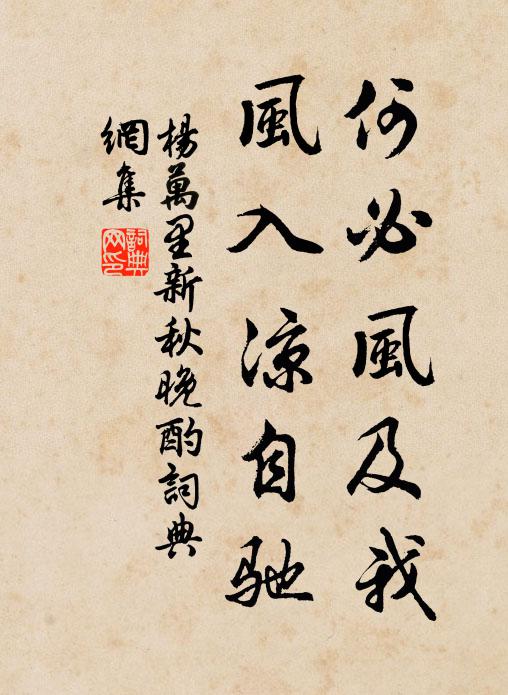 何必風及我
風入涼自馳
楊萬里新秋晚酌詞典
網集
詞典
网印